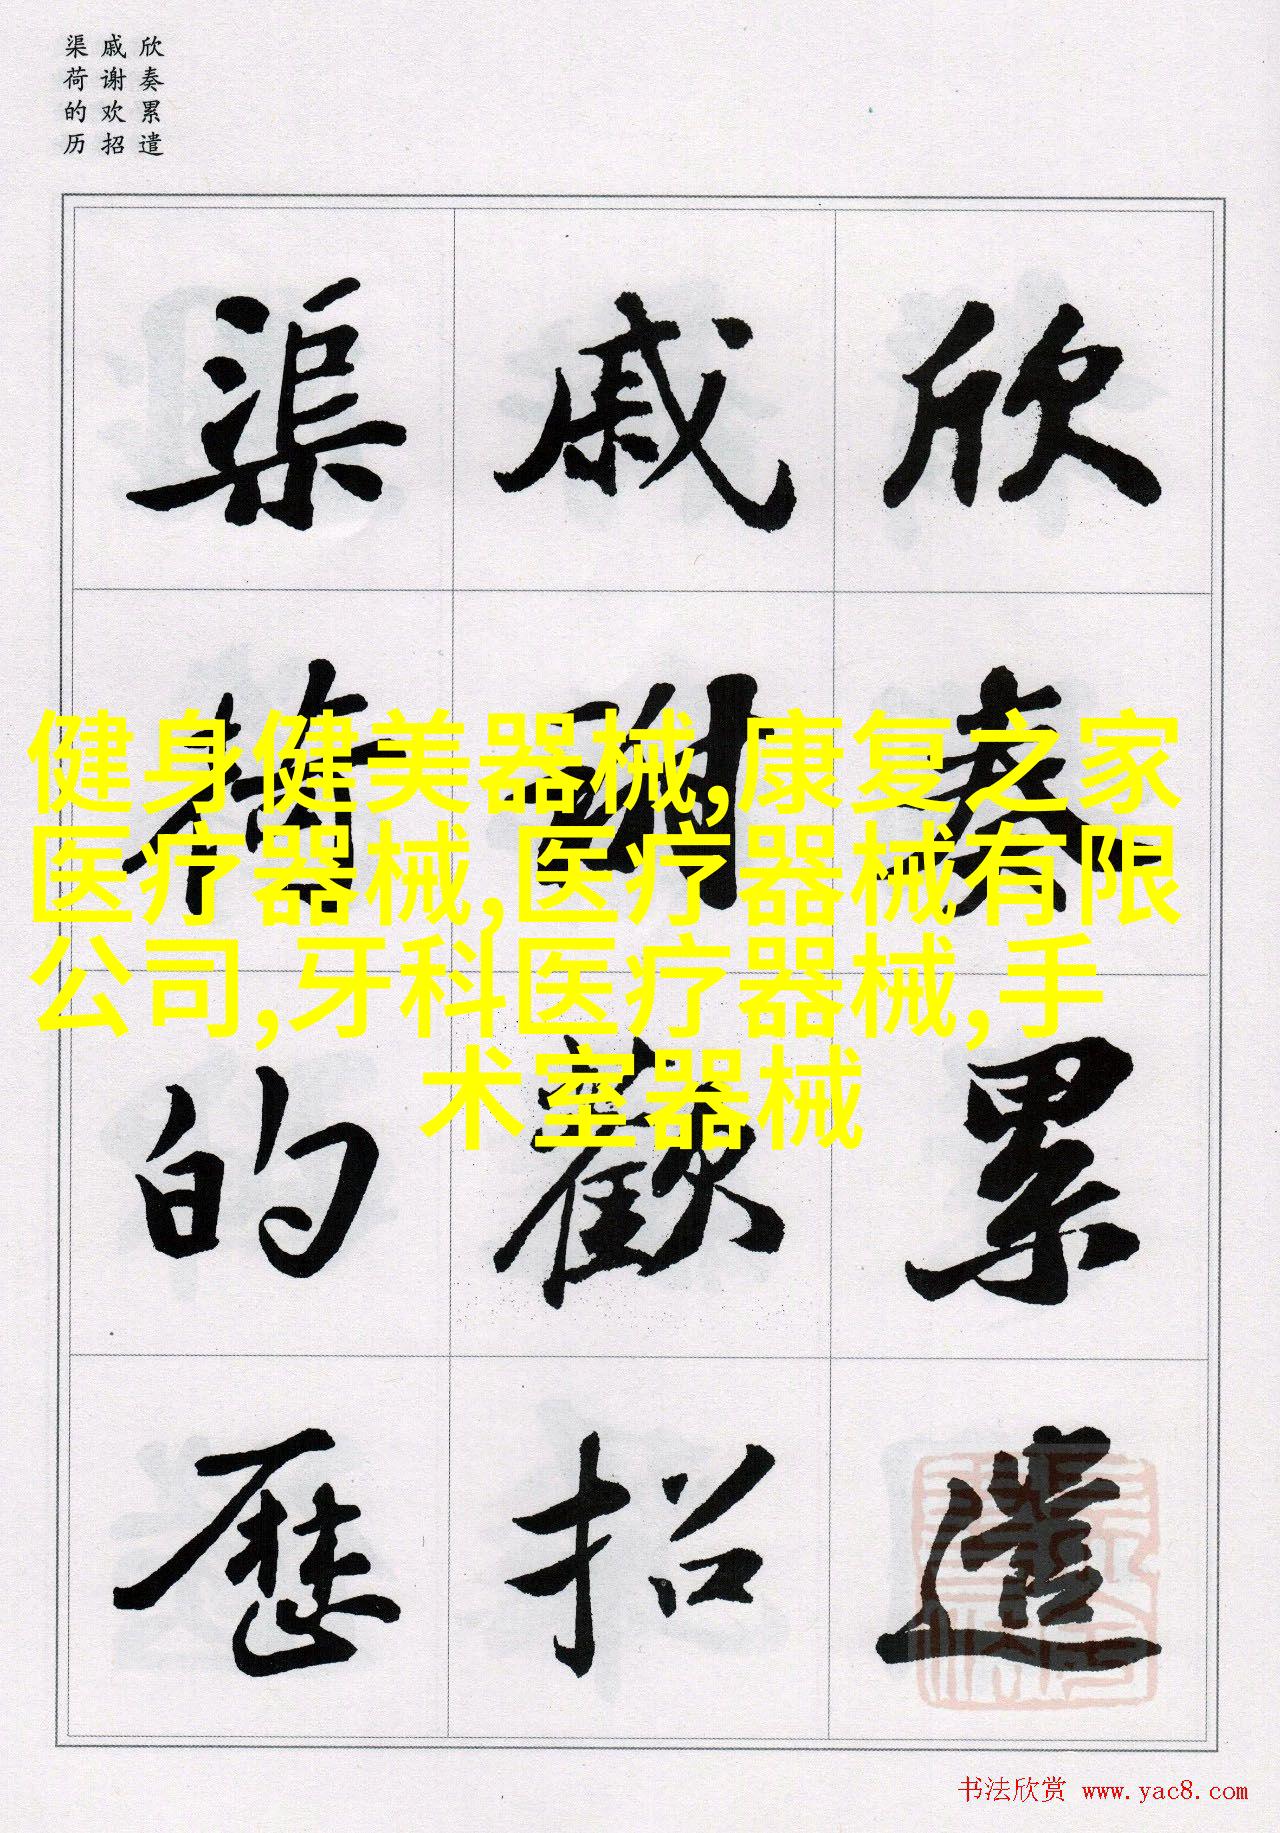 欣奏累遣
戚谢欢招
渠荷的历
欣奏累遣
戚謝歡招
渠荷的歷
健身健美器械,康复之家
医疗器械,医疗器械有限
公司,牙科医疗器械,手
术室器械
书法欣赏 www.yac8.com